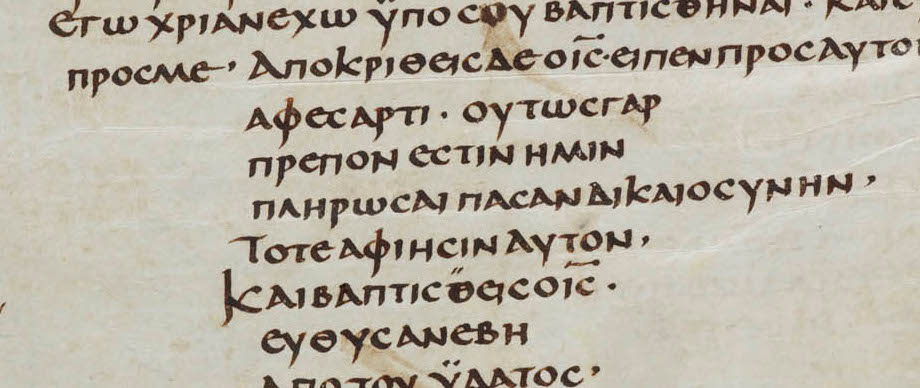 ΕΓω ΧΡΙΑΝ ΕΧω ΫΠΟ CΟΥ ΒΑΠΤΙCΘΗΝΑΙ · ΚΑΙ C
ΠΡΟC ΜΕ · ΑΠΟΚΡΙΘΕΙC ΔΕ Ο ΙC̅ · ΕΙΠΕΝ ΠΡΟC ΑΥΤΟ
ΑΦΕC ΑΡΤΙ · ΟΥΤωC ΓΑΡ
ΠΡΕΠΟΝ ΕCΤΙΝ ΗΜΙΝ
ΠΛΗΡωCΑΙ ΠΑCΑΝ ΔΙΚΑΙΟCΥΝΗΝ ,
ΤΟΤΕ ΑΦΙΗCΙΝ ΑΥΤΟΝ ,
ΚΑΙ ΒΑΠΤΙCΘΕΙC Ο ΙC̅ ·
ΕΥΘΥC ΑΝΕΒΗ
ΑΠΟ ΤΟΥ ΫΔΑΤΟC ,